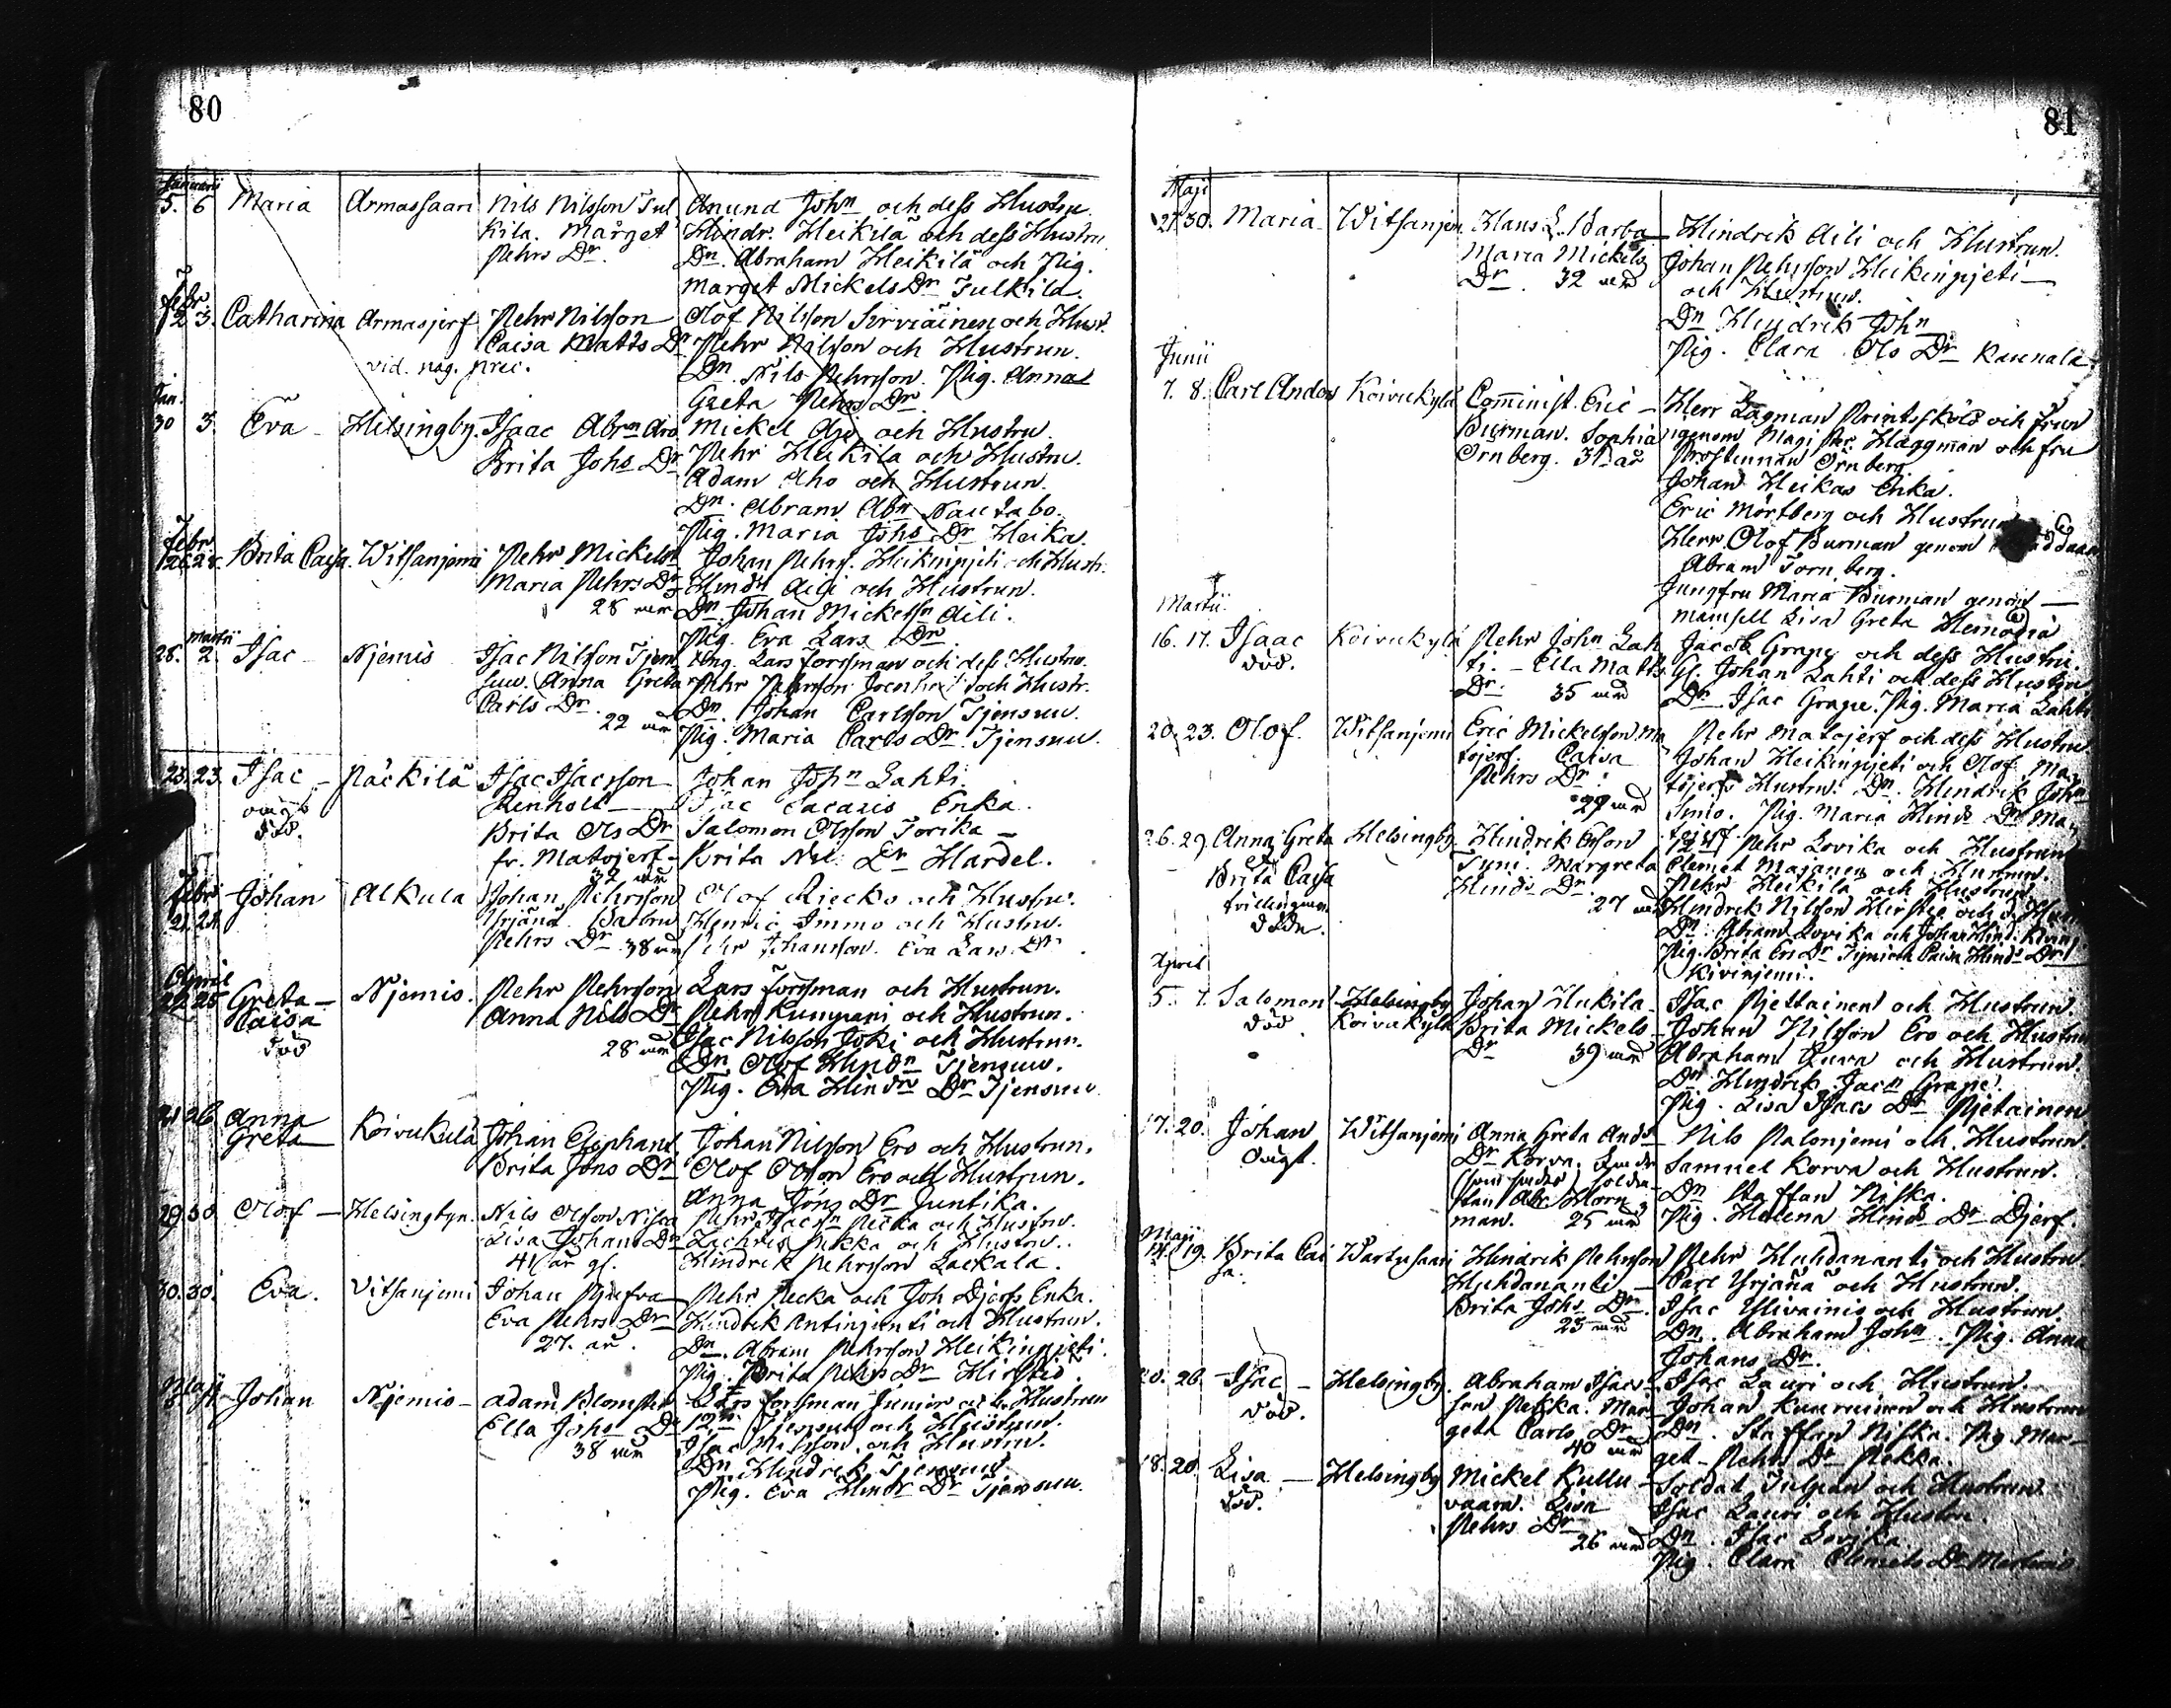 80
Januarii
5. 6 Maria Armassaari Nils Nilsson Tul Anund Johⁿ och dess Hustru
kila. Marget Hindr. Heikilä och dess Hustru
Pehrs Dr. Dn. Abraham Heikilä och Pig.
Marget Mickels Dr Tulkila.
Febr.
2 3. Catharina Armasjerf Pehr Nilsson Olof Nilsson Sirviäinen och Hust.
Caisa Matts Dr Pehr Nilsson och Hustrun.
vid. pag. prec. Dn. Nils Pehrsson. Pig. Anna
Greta Pehrs Dr
Jan.
30 3. Eva Helsingby. Isaac Abrn Aho Mickel Aho och Hustru.
Brita Johs Dr Pehr Heikila och Hustru.
Adam Aho och Hustrun.
Dn. Abram Abn Nautabo.
Pig. Maria Johs Dr Heika.
Febr.
26 28. Brita Caisa Witsanjemi Pehr Mickelsn Johan Pehrs. Heikinpjeti och Hustr.
Maria Pehrs Dr Hindr Aili och Hustrun.
28 Dn. Johan Mickelsn Aili.
Pig. Eva Lars Dr
Martii
28. 2. Isac Njemis Isac Nilsson Tjen Lars Forssman och dess Hustru.
suu. Anna Greta Pehr Pehrsson och Hustr.
Carls Dr. Dn. Johan Carlsson Tjensuu.
22 Pig. Maria Carls Dr Tjensuu.
23. 23. Isac Päckilä Isac Isacsson Johan Johⁿ Lahti
oägt Renholt Isac Enka.
död. Brita Ols Dr Salomon Olsson Torika
fr. Matojerf Brita Nil. Dr Hardel.
32
Febr
21. 24. Johan Alkula Johan Pehrsson Olof Riecko och Hustru.
Yrjänä Henric Immo och Hustru.
Pehrs Dr 38 Pehr Johansson. Eva Lars Dr
April
22 25 Greta Njemis. Pehr Pehrsson Lars Forssman och Hustrun.
Caisa Anna Nils Dr Pehr Kumpari och Hustrun.
död 28 Isac Nilsson Joki och Hustrun.
Dn. Olof Hindn Tjensuu.
Pig. Eva Hindrs Dr Tjensuu
21 26 Anna Koivukulä Johan Elephant Johan Nilsson Ero och Hustrun.
Greta Brita Jöns Dr Olof Olsson Ero och Hustrun.
Anna Jöns Dr Juntika.
29 30 Olof Helsingbyn. Nils Olsson Niska Pehr Isacsn Pecka och Hustru.
Lisa Johans Dr Zachris Pekka och Hustru.
41 år gl. Hindrik Pehrsson Lackala.
30. 30. Eva. Vitsanjemi Johan Pehr Pecka och Joh Djerfs Enka.
Eva Pehrs Dr Hindrik Antinpenti och Hustrun.
27. år. Dn. Abram Pehrsson Heikinpjeti.
Pig. Brita Pehrs Dr Hirstiö
Maji
Johan Njemis Adam Blomster Lars Forssman Junior och Hustrun
Ella Johs Dr Tjensuu och Hustrun.
38 Isac Nilsson och Hustrun.
Dn. Hindrik Tjensuu
Pig. Eva Hindr Dr Tjensuu.
81
Maji
27. 30. Maria Witsanjemi Hans L. Barba Hindrik Aili och Hustrun.
Maria Mickels Johan Pehrsson Heikinpjeti
Dr. 32 och Hustrun.
Dn Hindrik Johⁿ
Pig. Clara Ols Dr Kaunala
Junii
7. 8. Carl Anders Koivukylä Comminist. Eric Herr Lagman Printzsköld och frun
Burman. Sophia genom Mag. Häggman och fru
Örnberg. 31 år Prostinnan Örnberg.
Johan Heikas Enka.
Eric Mörtberg och Hustrun
Herr Olof Burman genom
Abram Törnberg.
Jungfru Maria Burman genom
mamsell Lisa Greta
Martii.
16. 17. Isaac Koivukylä Pehr Johⁿ Lah Jacob Grape och dess Hustru.
död. ti. Ella Matts Gl. Johan Lahti och dess Hustru
Dr. 35 Dn Isac Grape. Pig. Maria Lahti
20. 23. Olof. Witsanjemi Eric Mickelsson Ma Pehr Matojerf och dess Hustru
tojerf. Caisa Johan Heikinpjeti och Olof Ma
Pehrs Dr tojerfs Hustru. Dn. Hindrik Johⁿ
Simo. Pig. Maria Hinds Dr Ma
26. 29 Anna Greta Helsingby Hindrik Ersson tojerf Pehr Lovika och Hustrun
et Tyni. Margreta Clemet Majanen och Hustrun.
Brita Caisa Hinds Dr. Pehr Heikila och Hustrun.
tvillingar 27 Hindrik Nilsson Hirstiö och
döde. Dn. Abram Lovika och Johan
Pig. Brita Ers Dr Tyni och Caisa Hinds Dr
Kivinjemi.
April
5. 7. Salomon Helsingby Johan Heikila Isac Pjettainen och Hustrun.
död Koivukylä Brita Mickels Johan Nilsson Ero och Hustru
Dr 39 Abraham och Hustrun.
Dn. Hindrik Jacn Grape.
Pig. Lisa Isacs Dr Pjetainen
17. 20. Johan Witsanjemi Anna Greta Ands Nils Palonjemi och Hustrun.
Oägt. Dr Korva. Samuel Korva och Hustrun.
Dn Staffan Niska.
man. 25 Pig. Helena Hinds Dr Djerf.
Maji
14. 19. Brita Cai Wartusaari Hindrik Pehrsson Pehr Huhdananti och Hustru
sa. Huhdananti Carl Yrjänä och Hustrun.
Brita Johs Dr. Isac Ylivainio och Hustrun.
25 Dn. Abraham Johⁿ. Pig. Anna
Johans Dr.
20. 26. Isac Helsingby. Abraham Isacs Isac Lauri och Hustrun.
död. son Pekka. Mar Johan och Hustrun
geta Carls Dr Dn. Staffan Niska. Pig. Mar
40 get Pehrs Dr Pekka.
18. 20. Lisa Helsingby Mickel Kullu Soldat Tulpan och Hustrun.
död. vaara. Lisa Isac Lauri och Hustru.
Pehrs Dr Dn. Isac Lovika
26 Pig. Clara Clemets Dr